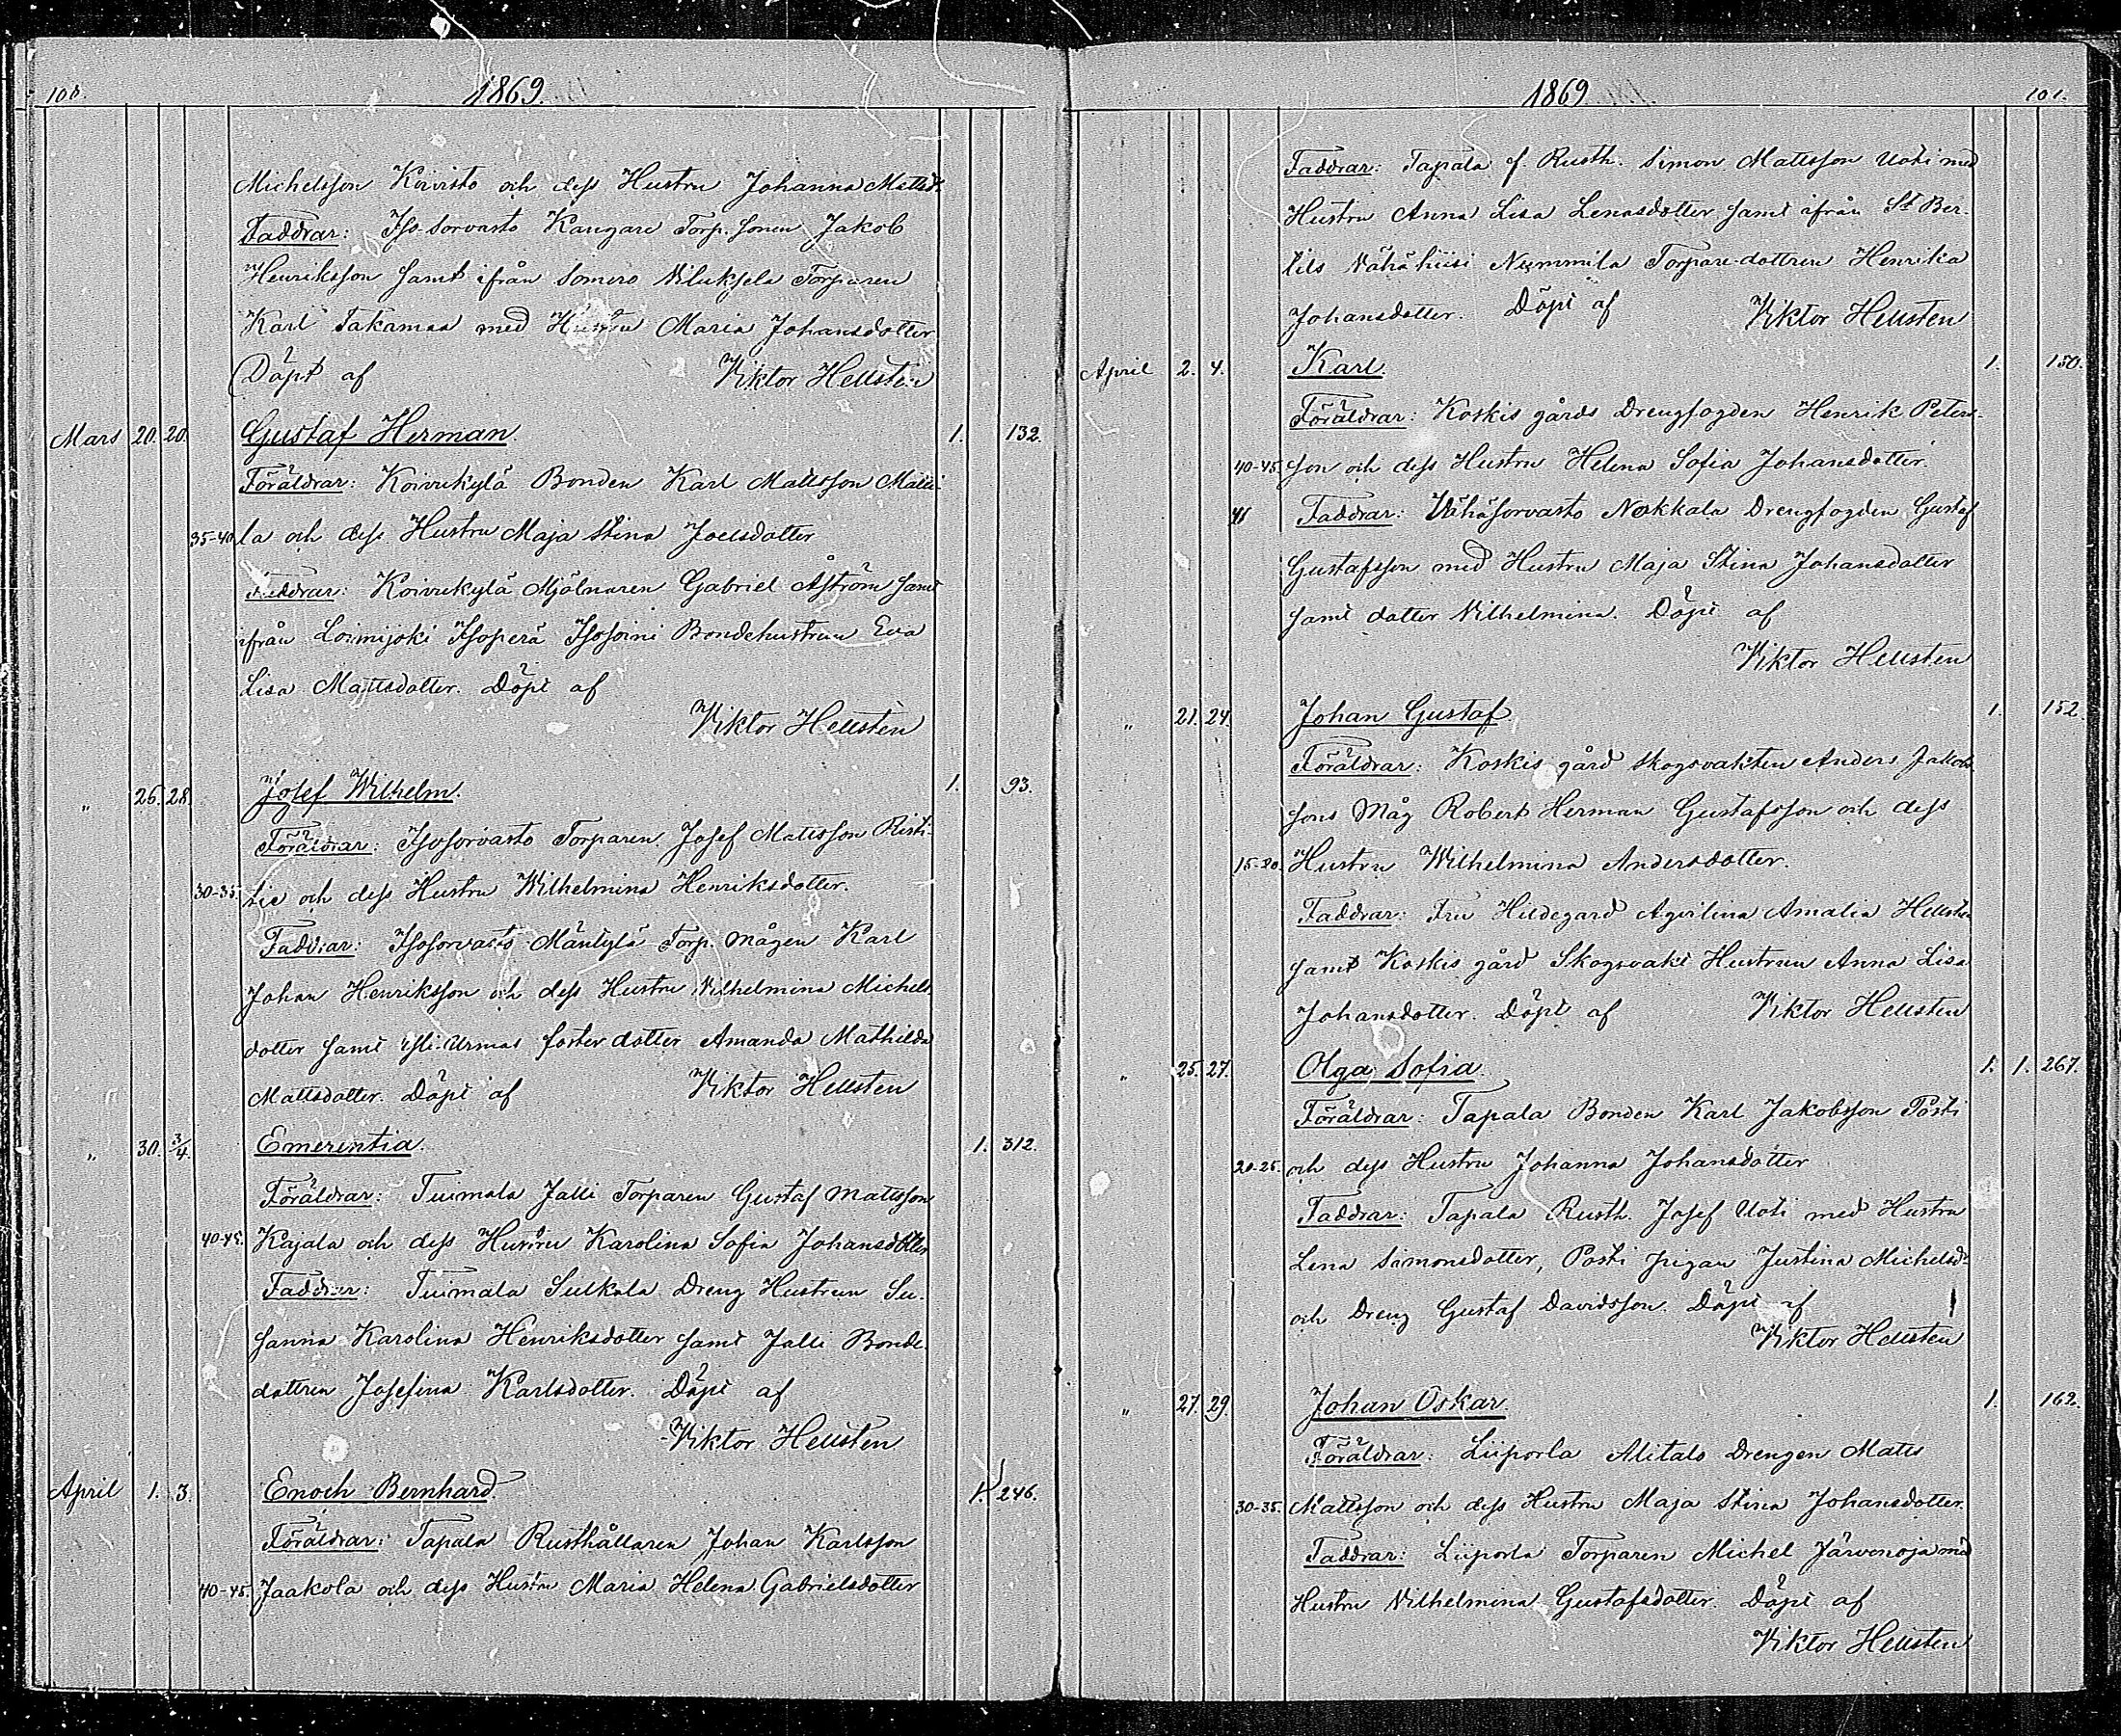 100.
1869.
Michelsson Koivisto och dess Hustru Johanna Mattsd.
Faddrar: Iso-Sorvasto Kangare Torp. Sonen Jakob
Henriksson samt ifrån Somero Viluksela Torparen
Karl Takamaa med Hustru Maria Johansdotter
Döpt af Viktor Hellsten
Mars 20. 20. Gustaf Herman. 1. 132.
Föräldrar: Koivukylä Bonden Karl Mattsson Matti-
35-40 la och dess Hustru Maja Stina Joelsdotter
Faddrar: Koivukylä Mjölnaren Gabriel Åström samt
ifrån Loimijoki Isoperä Isosoini Bondehustrun Eva
Lisa Mattsdotter. Döpt af
Viktor Hellsten
" 26. 28. Josef Wilhelm. 1. 93.
Föräldrar: Isosorvasto Torparen Josef Mattsson Risti-
30-35. tie och dess Hustru Wilhelmina Henriksdotter.
Faddrar: Isosorvasto Mäntylä Torp. mågen Karl
Johan Henriksson och dess Hustru Vilhelmina Michels-
dotter samt Yli-Urmas fosterdotter Amanda Mathilda
Mattsdotter. Döpt af Viktor Hellsten
" 30. 3/4. Emerentia. 1. 312.
Föräldrar: Tuimala Jalli Torparen Gustaf Mattsson
40-45. Kajala och dess Hustru Karolina Sofia Johansdotter
Faddrar: Tuimala Sulkala Dreng Hustrun Su-
sanna Karolina Henriksdotter samt Jalli Bonde-
dottren Josefina Karlsdotter. Döpt af
Viktor Hellsten
April 1. 3. Enoch Bernhard. 1. 246.
Föräldrar: Tapala Rusthållaren Johan Karlsson
40-45. Jaakola och dess Hustru Maria Helena Gabrielsdotter
1869
101.
Faddrar: Tapala f. Rusth. Simon Mattsson Uoti med
Hustru Anna Lisa Lenasdotter samt ifrån St Ber-
tils Vähähiisi Nummila Torpare-dottren Henrika
Johansdotter. Döpt af Viktor Hellsten
April 2. 4. Karl. 1. 150.
Föräldrar: Koskis gårds Drengfogden Henrik Peters-
40-45 son och dess Hustru Helena Sofia Johansdotter.
41 Faddrar: Vähäsorvasto Nokkala Drengfogden Gustaf
Gustafsson med Hustru Maja Stina Johansdotter
samt dotter Vilhelmina. Döpt af
Viktor Hellsten
" 21. 24. Johan Gustaf 1. 152.
Föräldrar: Koskis gård Skogsvakten Anders Jakobs-
sons Måg Robert Herman Gustafsson och dess
15-20. Hustru Wilhelmina Andersdotter.
Faddrar: Fru Hildegard Agvilina Amalia Hellsten
samt Koskis gård Skogsvakt Hustrun Anna Lisa
Johansdotter. Döpt af Viktor Hellsten
" 25. 27. Olga Sofia. 1. 1. 267.
Föräldrar: Tapala Bonden Karl Jakobsson Posti
20-25. och dess Hustru Johanna Johansdotter
Faddrar: Tapala Rusth. Josef Uoti med Hustru
Lena Simonsdotter, Posti pigan Justina Michelsd-
och Dreng Gustaf Davidsson. Döpt af
Viktor Hellsten
" 27. 29. Johan Oskar. 1. 162.
Föräldrar: Liiporla Alitalo Drengen Matts
30-35. Mattsson och dess Hustru Maja Stina Johansdotter.
Faddrar: Liiporla Torparen Michel Järvenoja med
Hustru Vilhelmina Gustafsdotter. Döpt af
Viktor Hellsten